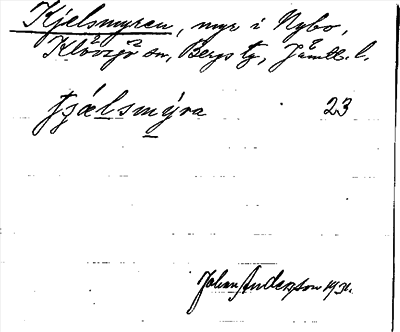 Kjelsmyren, myr i Nybo,
Klövsjö sn, Bergs tg, Jämtl. l.
tjǽlsmýra 23
Johan Anderzson 19